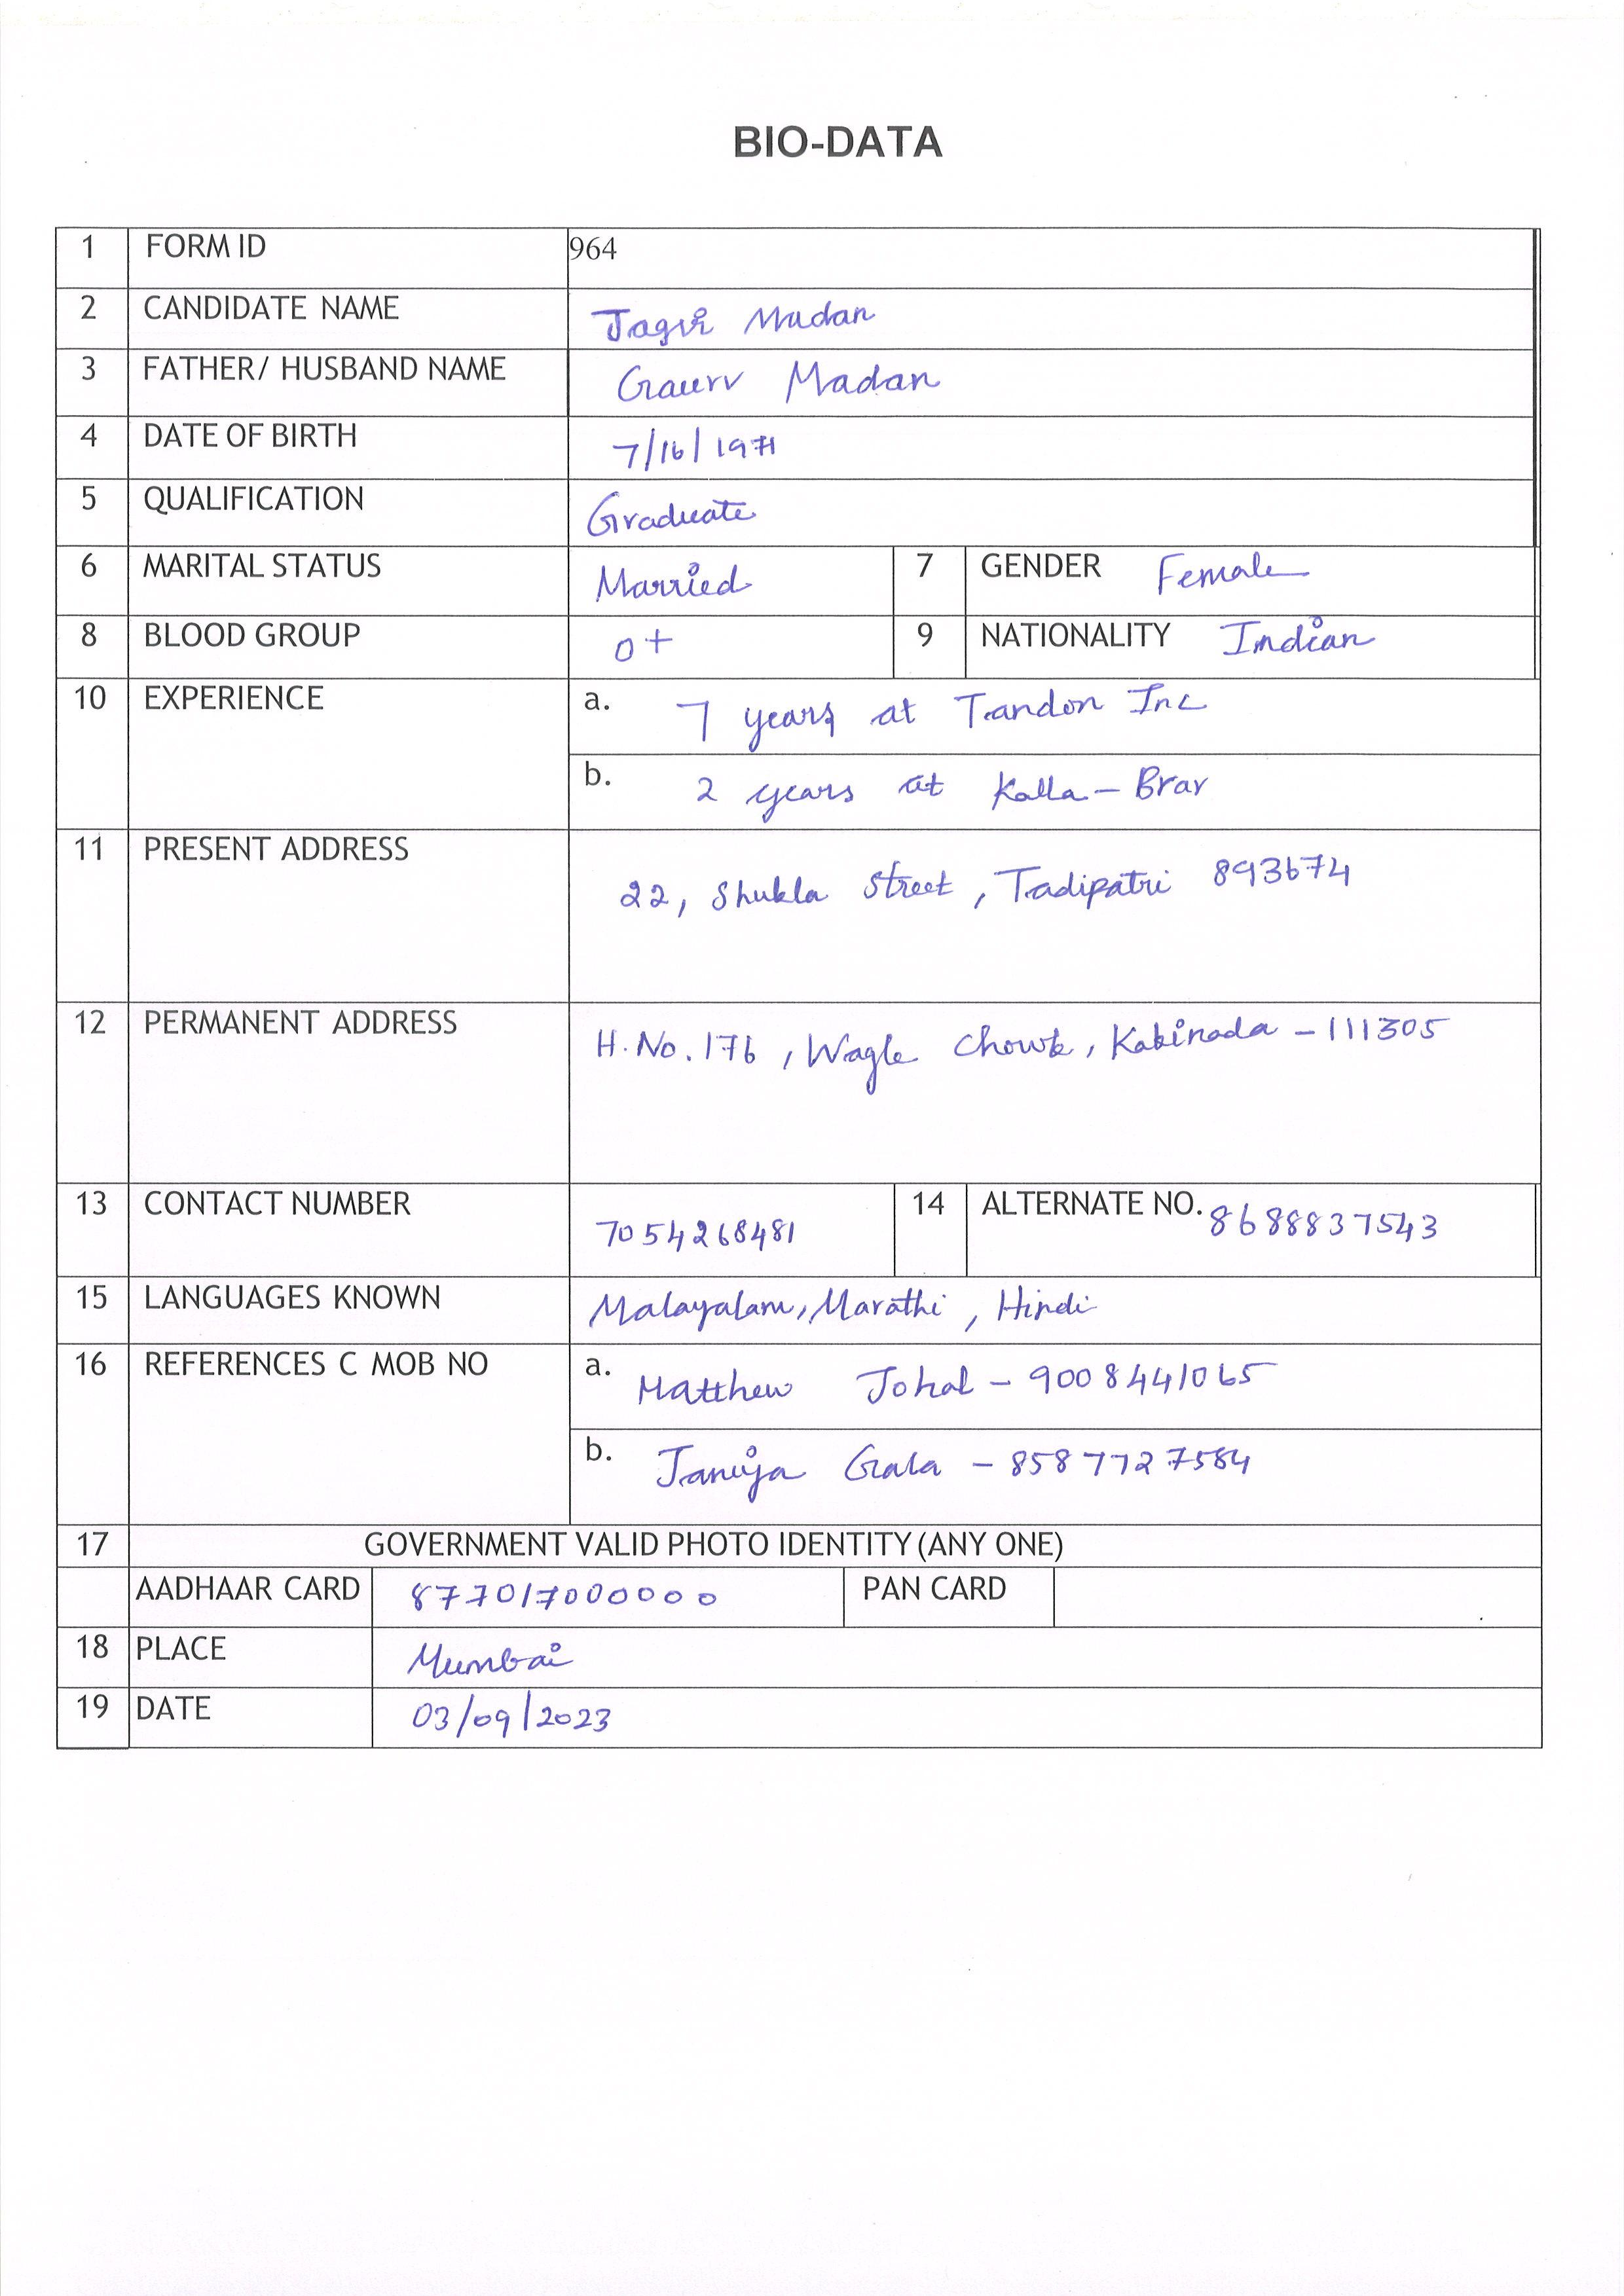 BIO-DATA
1 FORM ID 964
2 CANDIDATE NAME Jagvi Madan
3 FATHER/ HUSBAND NAME Gaurv Madan
4 DATE OF BIRTH 7/16/1971
5 QUALIFICATION Graduate
6 MARITAL STATUS Married 7 GENDER Female
8 BLOOD GROUP O+ 9 NATIONALITY Indian
10 EXPERIENCE a. 7 years at Tandon Inc
b. 2 years at Kalla-Brar
11 PRESENT ADDRESS 22, Shukla Street, Tadipatri 893674
12 PERMANENT ADDRESS H.No.176, Wagle Chowk, Kakinada - 111305
13 CONTACT NUMBER 7054268481 14 ALTERNATE NO. 8688837543
15 LANGUAGES KNOWN Malayalam, Marathi, Hindi
16 REFERENCES C MOB NO a. Matthew Johal - 9008441065
b. Janiya Gala - 8587727584
17 GOVERNMENT VALID PHOTO IDENTITY (ANY ONE)
AADHAAR CARD 877017000000 PAN CARD
18 PLACE Mumbai
19 DATE 03/09/2023